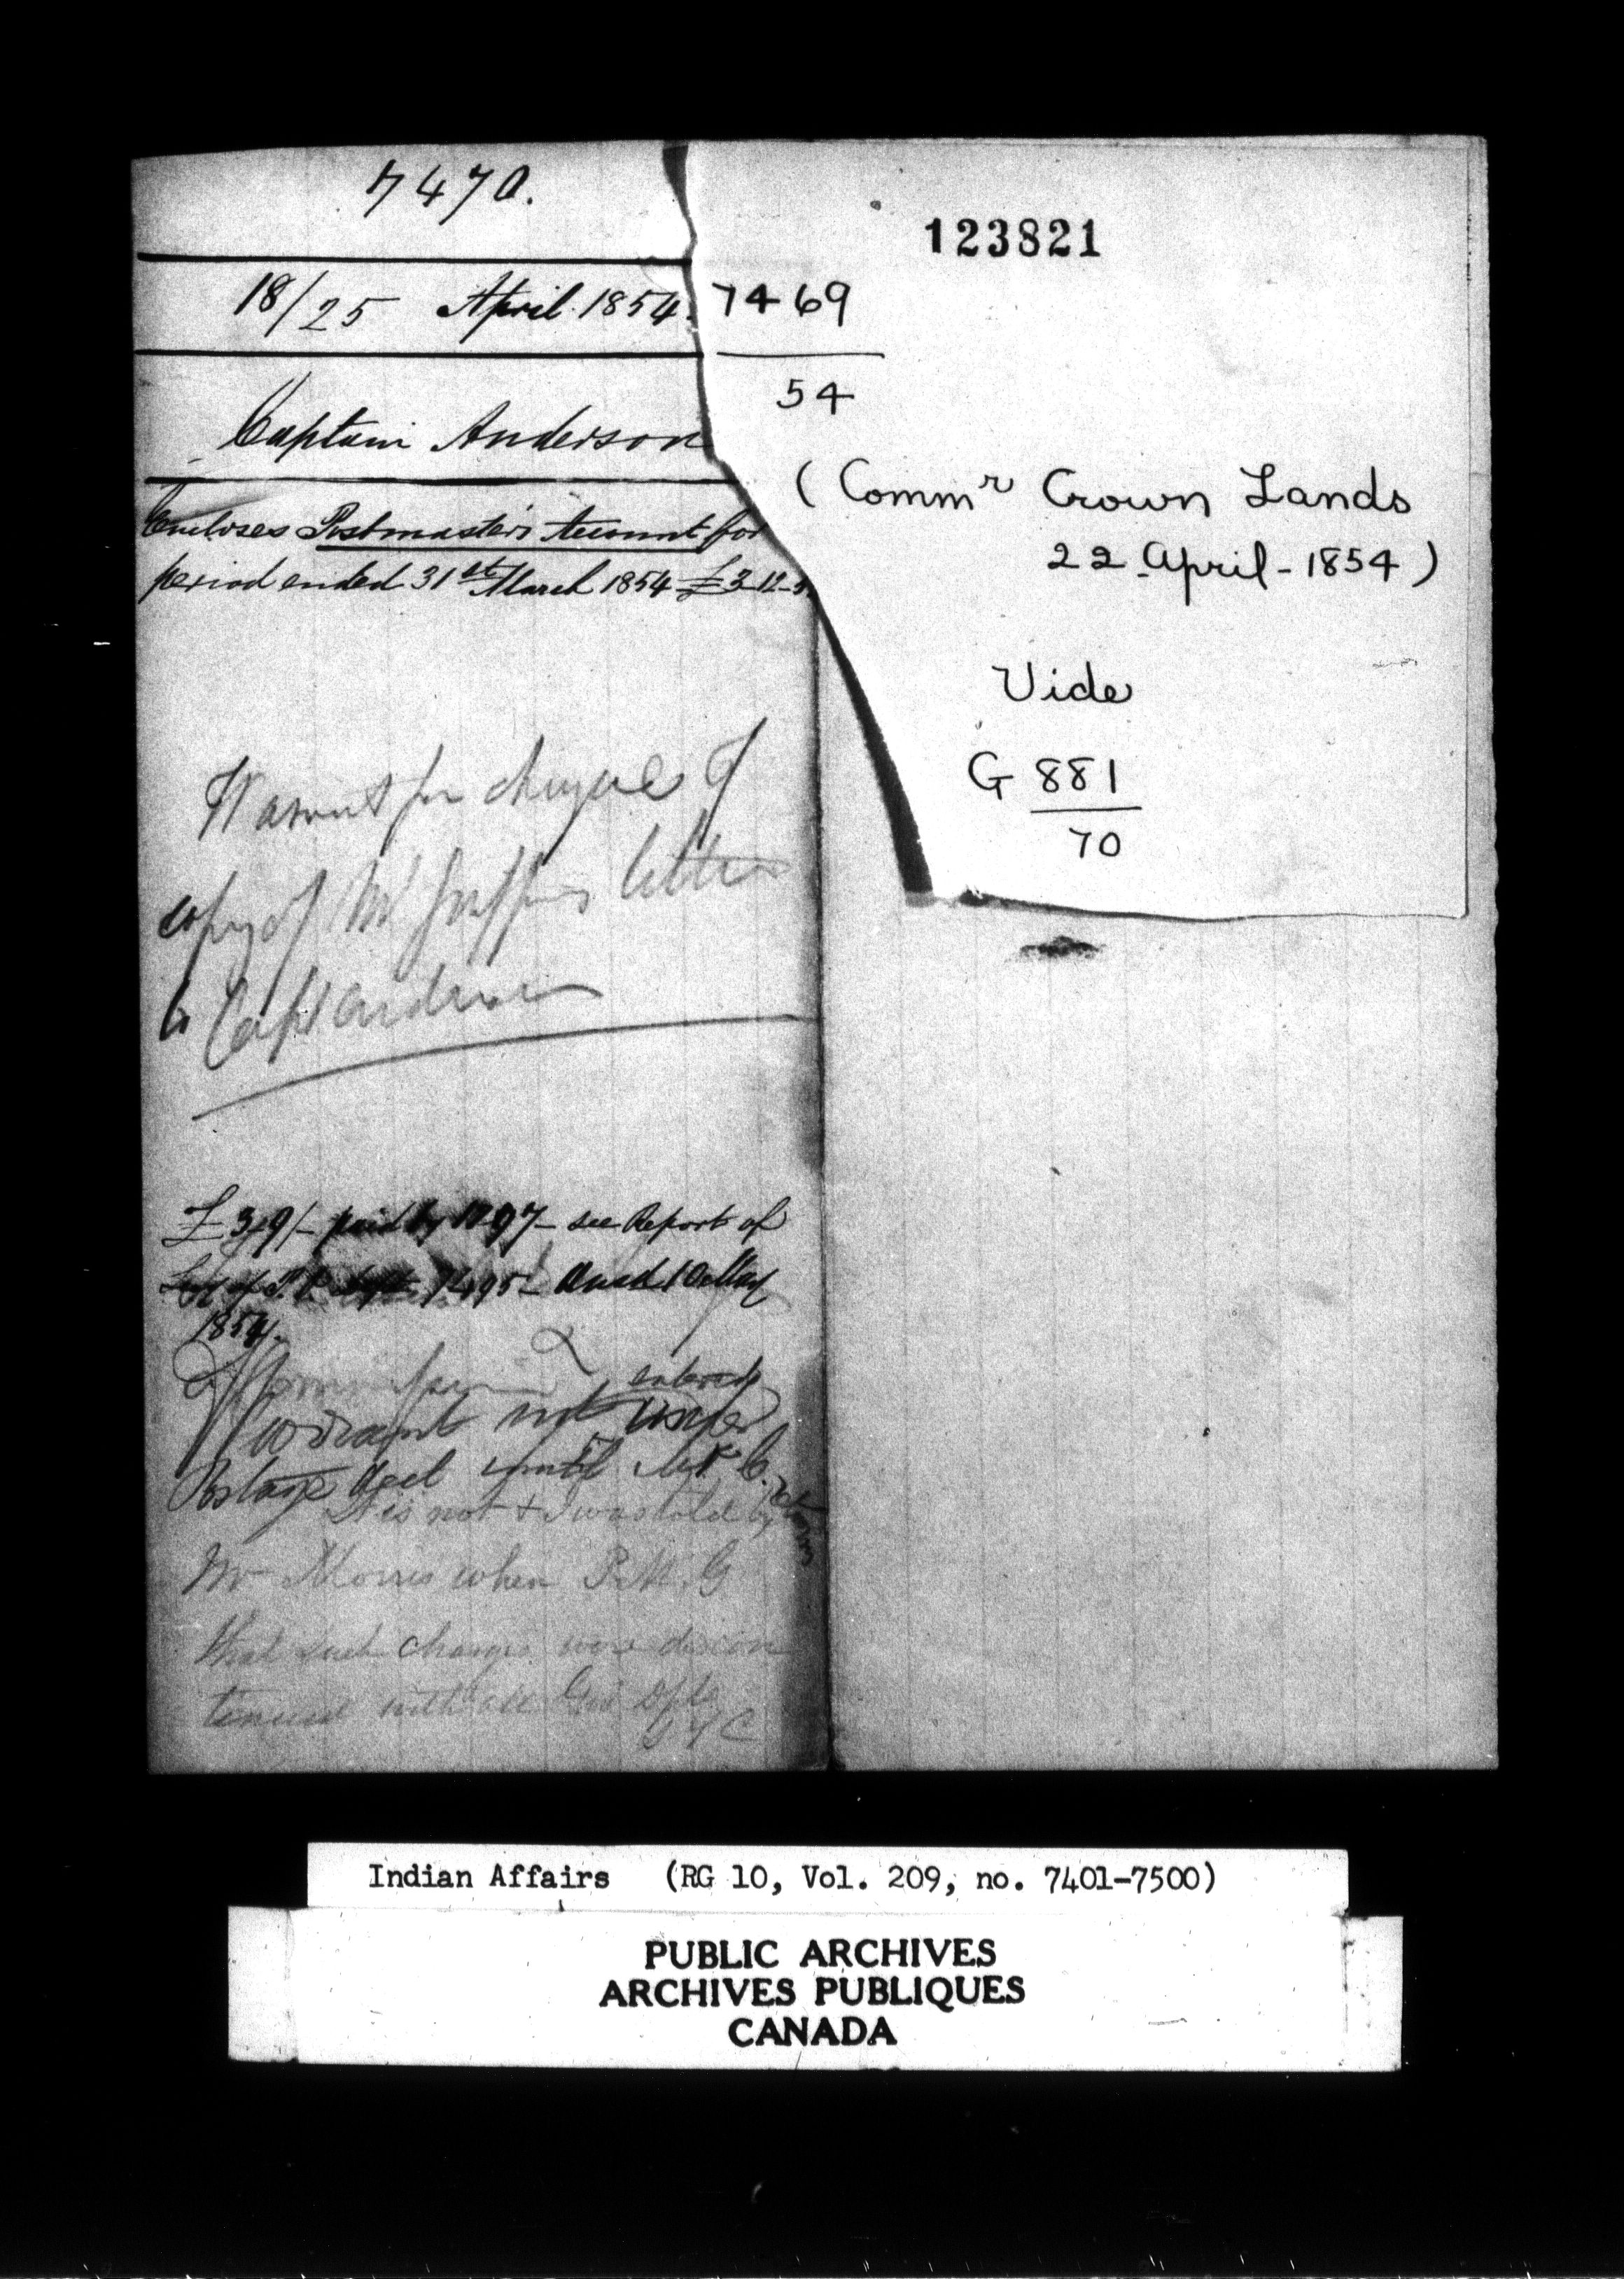 7470.
18/25 April 1854.
Captain Anderson
Encloses Postmaster's Account for
period ended 31st March 1854 £3-12-
Warrant for cheque &
copy of Mr letter
to Capt Anderson
£3,9/- paid by 1097- see Report of
1495-
1854.
Warrant not
Postage until Mr C.
It is not & I was told by
Mr Morris when P.M.G
that such charges were discon
tinued with all Gov Dpts
123821
7469
54
(Commr Crown Lands
22 April - 1854)
Vide
G 881
70
Indian Affairs (RG 10, Vol. 209, no. 7401-7500)
PUBLIC ARCHIVES
ARCHIVES PUBLIQUES
CANADA